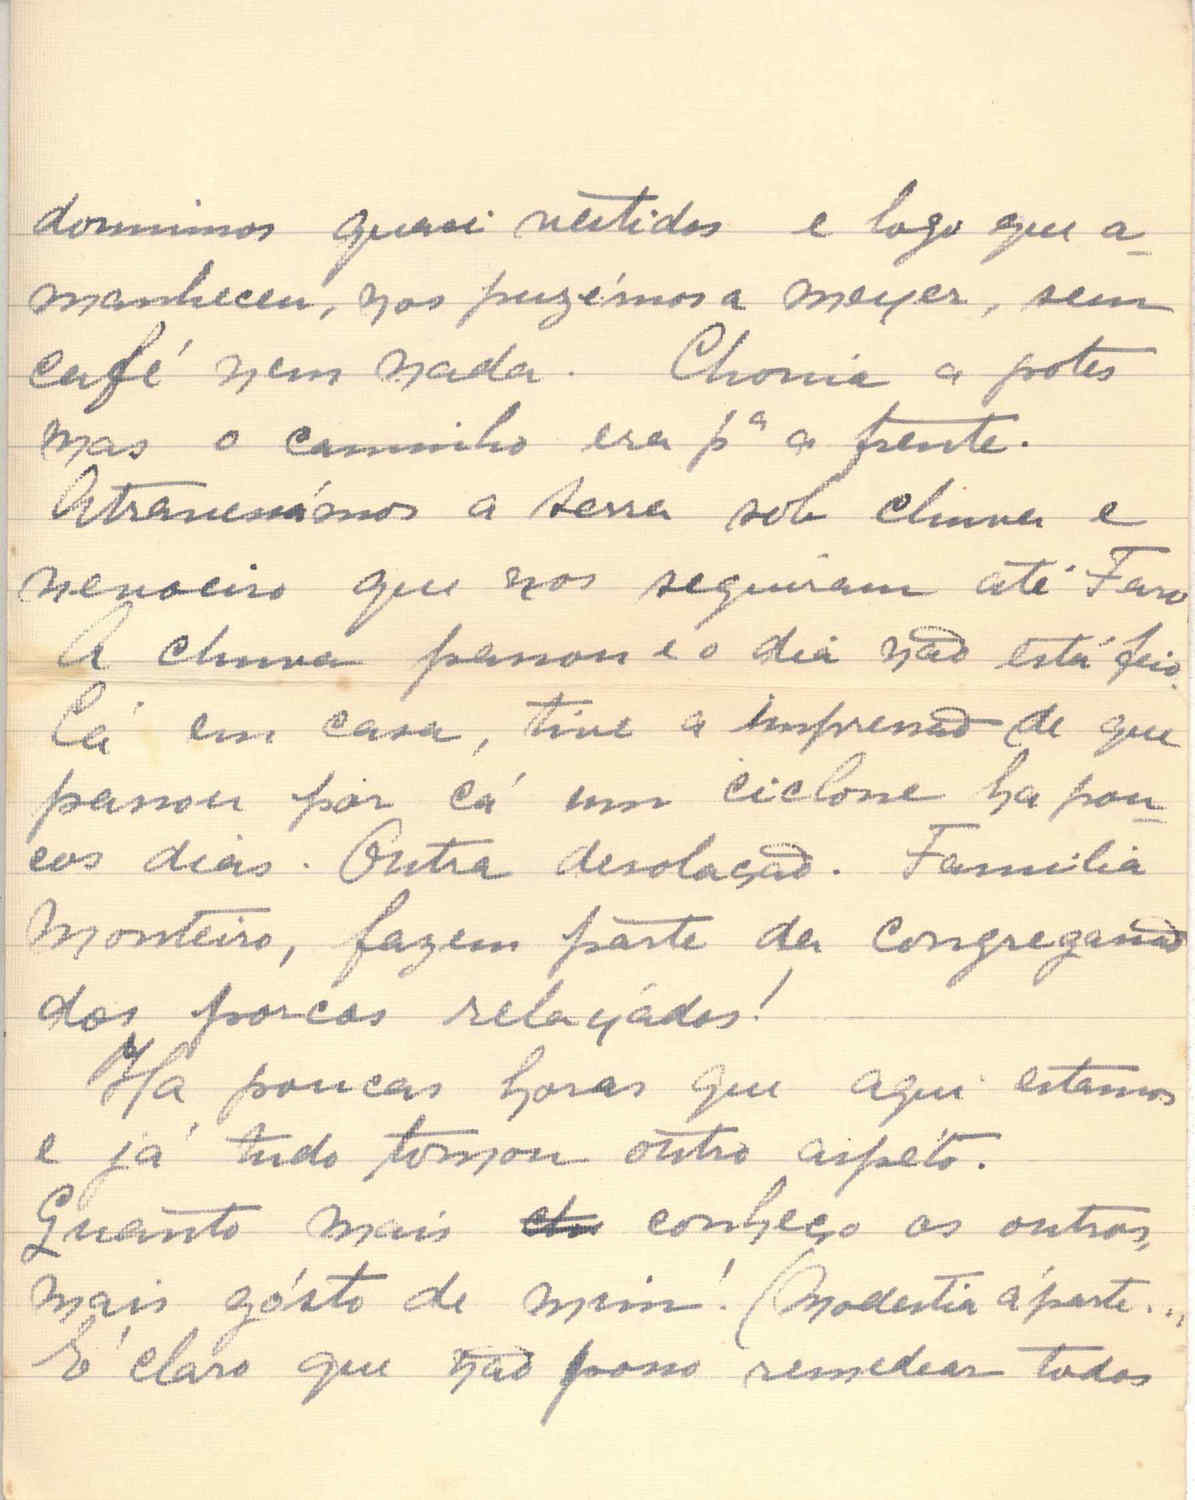 dormimos quasi vestidos e logo que a-
manheceu, nos puzémos a mexer, sem
café nem nada. Chovia a potes
mas o caminho era pª a frente.
Atravessámos a serra sob chuva e
nevoeiro que nos seguiram até Faro
A chuva passou e o dia não está feio.
Cá em casa, tive a impressão de que
passou por cá um ciclone ha pou-
cos dias. Outra desolação. Familia
Monteiro, fazem parte da congregação
dos porcos relaxádos!
Ha poucas horas que aqui estamos
e já tudo tomou outro aspéto.
Quanto mais conheço os outros,
mais gósto de mim! (Modestia áparte...
É claro que não posso remedear todos